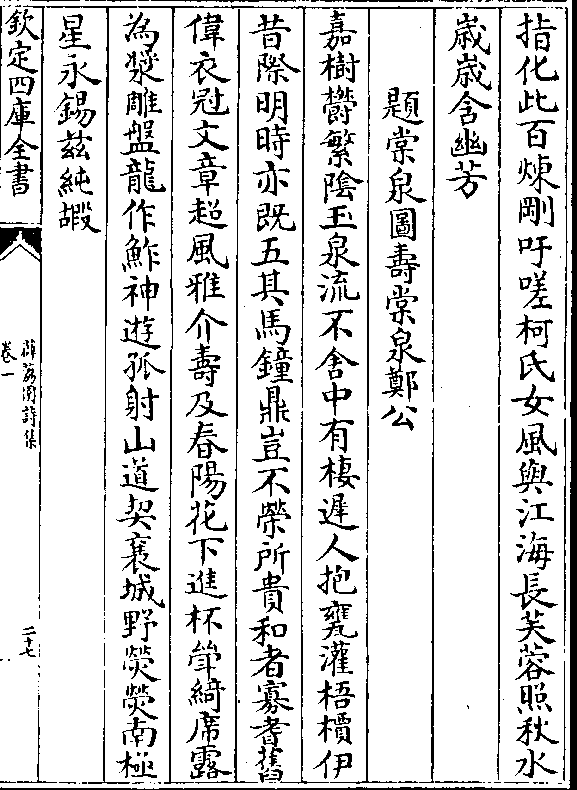 指化此百煉剛吁嗟柯氏女風與江海長芙蓉照秋水
歳歳含幽芳
題棠泉圖壽棠泉鄭公
嘉樹欝繁隂玉泉流不舍中有棲遲人抱甕灌梧檟伊
昔際明時亦既五其馬鐘鼎豈不榮所貴和者寡耆舊
偉衣冠文章超風雅介壽及春陽花下進杯斚綺席露
為漿雕盤龍作鮓神遊孤射山道契襄城野熒熒南極
星永錫兹純嘏
欽定四庫全書
薜荔園詩集
卷一
二十七